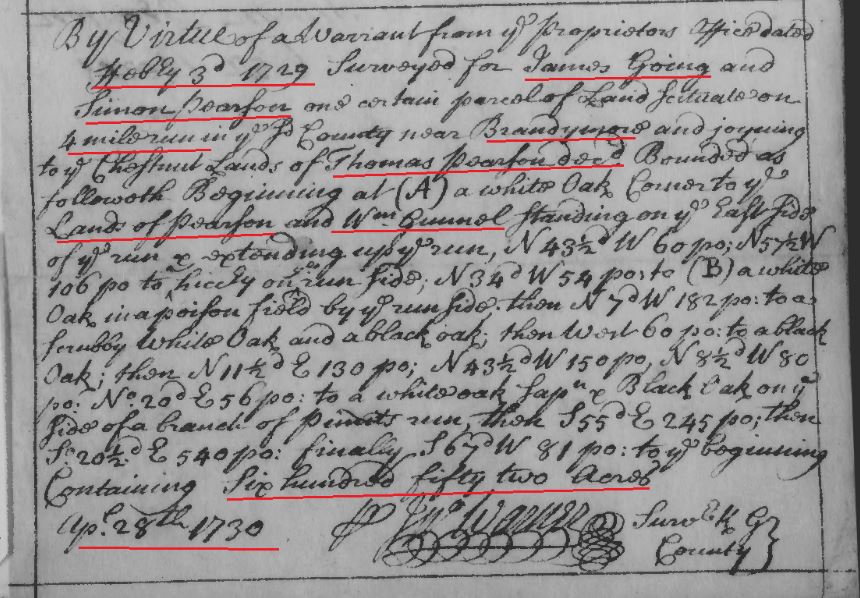 By Virtue of a Warrant from yᵉ Proprietors Office dated
Febry 3ᵈ 1729 Surveyed for James Going and
Simon Pearson one certain parcel of Land Scituate on
4 mile run in yᵉ Sᵈ County near Brandymore and joyning
to yᵉ Chestnut Lands of Thomas Pearson decᵈ Bounded as
followeth Beginning at (A) a white Oak Corner to yᵉ
Lands of Pearson and Wᵐ Gunnel standing on yᵉ East side
of yᵉ run & extending up yᵉ run, N 43½ᵈ W 60 po; N 57½ W
106 po to hiccky on run side; N 34ᵈ W 54 po: to (B) a white
Oak in a poison field by yᵉ run side. then N 7ᵈ W 182 po: to a
scrubby white Oak and a black oak; then West 60 po: to a black
Oak; then N 11½ᵈ E 130 po; N 43½ᵈ W 150 po, N 8½ᵈ W 80
po: Nᵒ. 20ᵈ E 56 po: to a white oak sapⁿ & Black Oak on yᵉ
side of a branch of Pimits run, then S 55ᵈ E 245 po; then
Sᵒ 20½ᵈ E 540 po: finally S 67ᵈ W 81 po: to yᵉ beginning
Containing Six hundred fifty two Acres
Apˡ 28th 1730 Jnᵒ Warner Survʳ K G
County